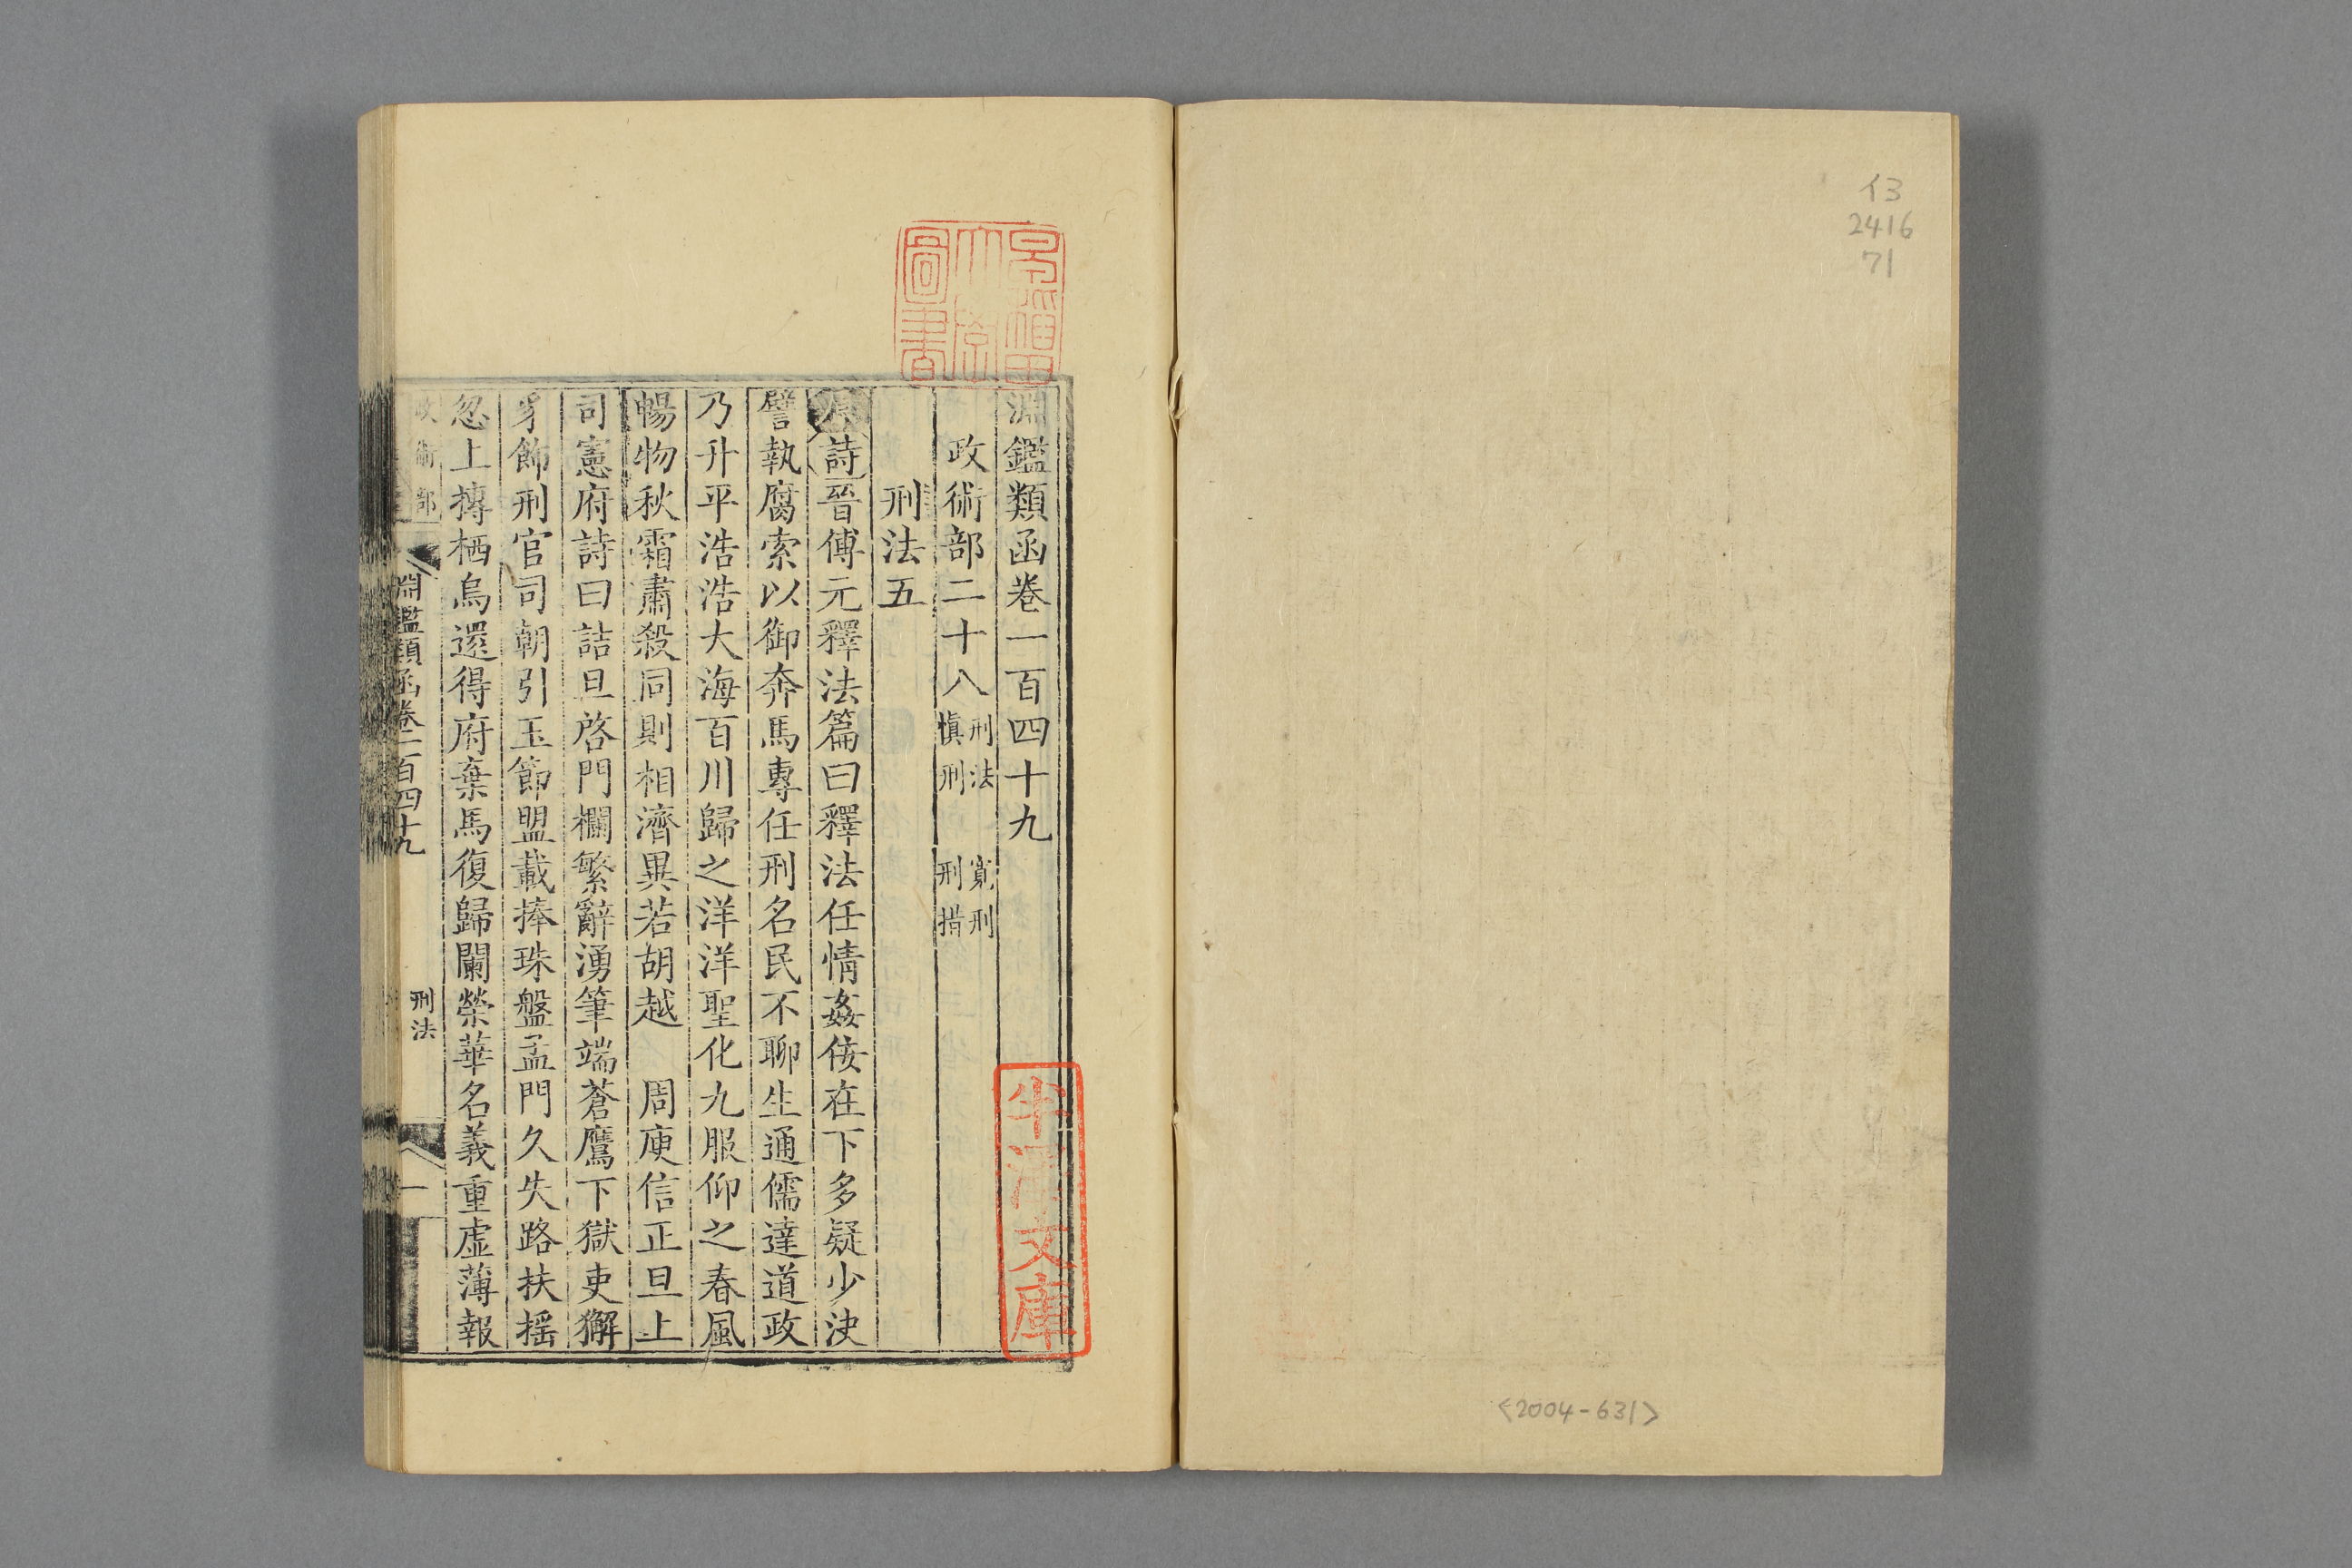 イ3
2416
71
<2004-631>
早稲田大學圖書
半澤文庫
淵鑑類函卷一百四十九
政術部二十八 刑法 慎刑 寬刑 刑措
刑法五
原詩晉傅元釋法篇曰釋法任情姦佞在下多疑少決
譬執腐索以御奔馬專任刑名民不聊生通儒達道政
乃升平浩浩大海百川歸之洋洋聖化九服仰之春風
暢物秋霜肅殺同則相濟異若胡越 周庾信正旦上
司憲府詩曰詰旦啓門欄繁辭湧筆端蒼鷹下獄吏獬
豸飾刑官司朝引玉節盟載捧珠盤孟門久失路扶搖
忽上摶栖烏還得府棄馬復歸闌榮華名義重虛薄報
政術部 淵鑑類函卷一百四十九 刑法 一